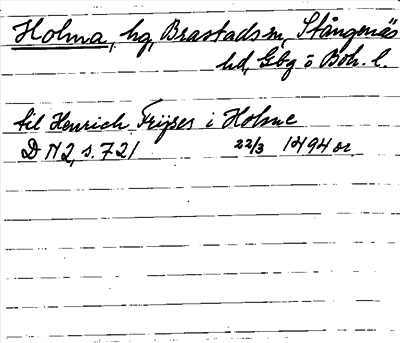 Holma, hg, Brastads sn, Stångenäs
hd, Gbg o Boh. l.
til Henrich Frijses i Holme
D N2, s. 721 22/3 1494 or.